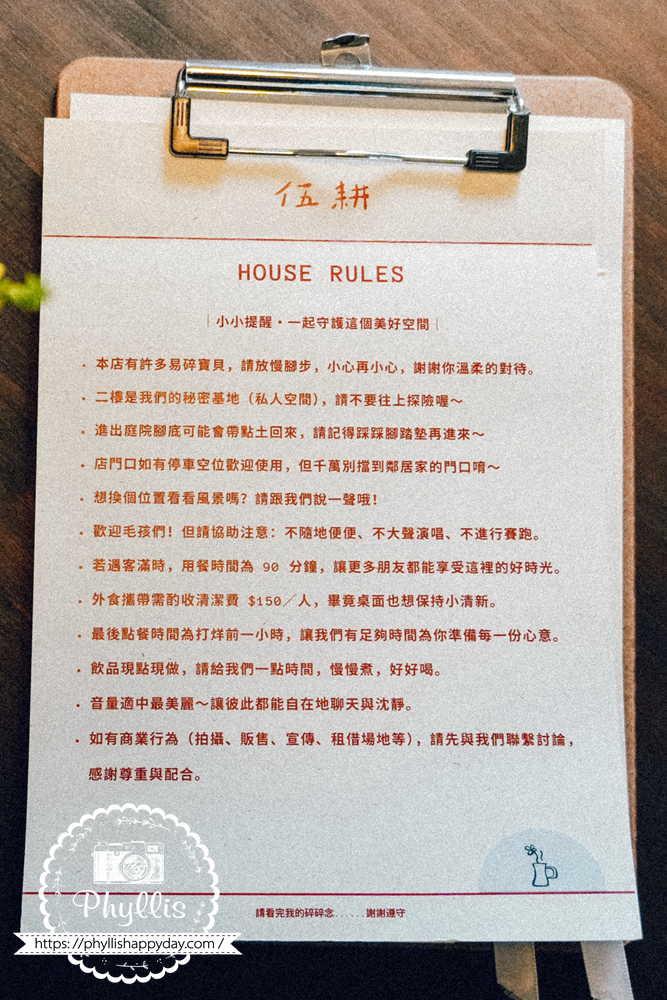 伍耕
HOUSE RULES
小小提醒・一起守護這個美好空間
・本店有許多易碎寶貝，請放慢腳步，小心再小心，謝謝你溫柔的對待。
・二樓是我們的秘密基地（私人空間），請不要往上探險喔～
・進出庭院腳底可能會帶點土回來，請記得踩踩腳踏墊再進來～
・店門口如有停車空位歡迎使用，但千萬別擋到鄰居家的門口唷～
・想換個位置看看風景嗎？請跟我們說一聲哦！
・歡迎毛孩們！但請協助注意：不隨地便便、不大聲演唱、不進行賽跑。
・若遇客滿時，用餐時間為 90 分鐘，讓更多朋友都能享受這裡的好時光。
・外食攜帶需酌收清潔費 $150／人，畢竟桌面也想保持小清新。
・最後點餐時間為打烊前一小時，讓我們有足夠時間為你準備每一份心意。
・飲品現點現做，請給我們一點時間，慢慢煮，好好喝。
・音量適中最美麗～讓彼此都能自在地聊天與沈靜。
・如有商業行為（拍攝、販售、宣傳、租借場地等），請先與我們聯繫討論，
感謝尊重與配合。
請看完我的碎碎念......謝謝遵守
Phyllis
https://phyllishappyday.com/